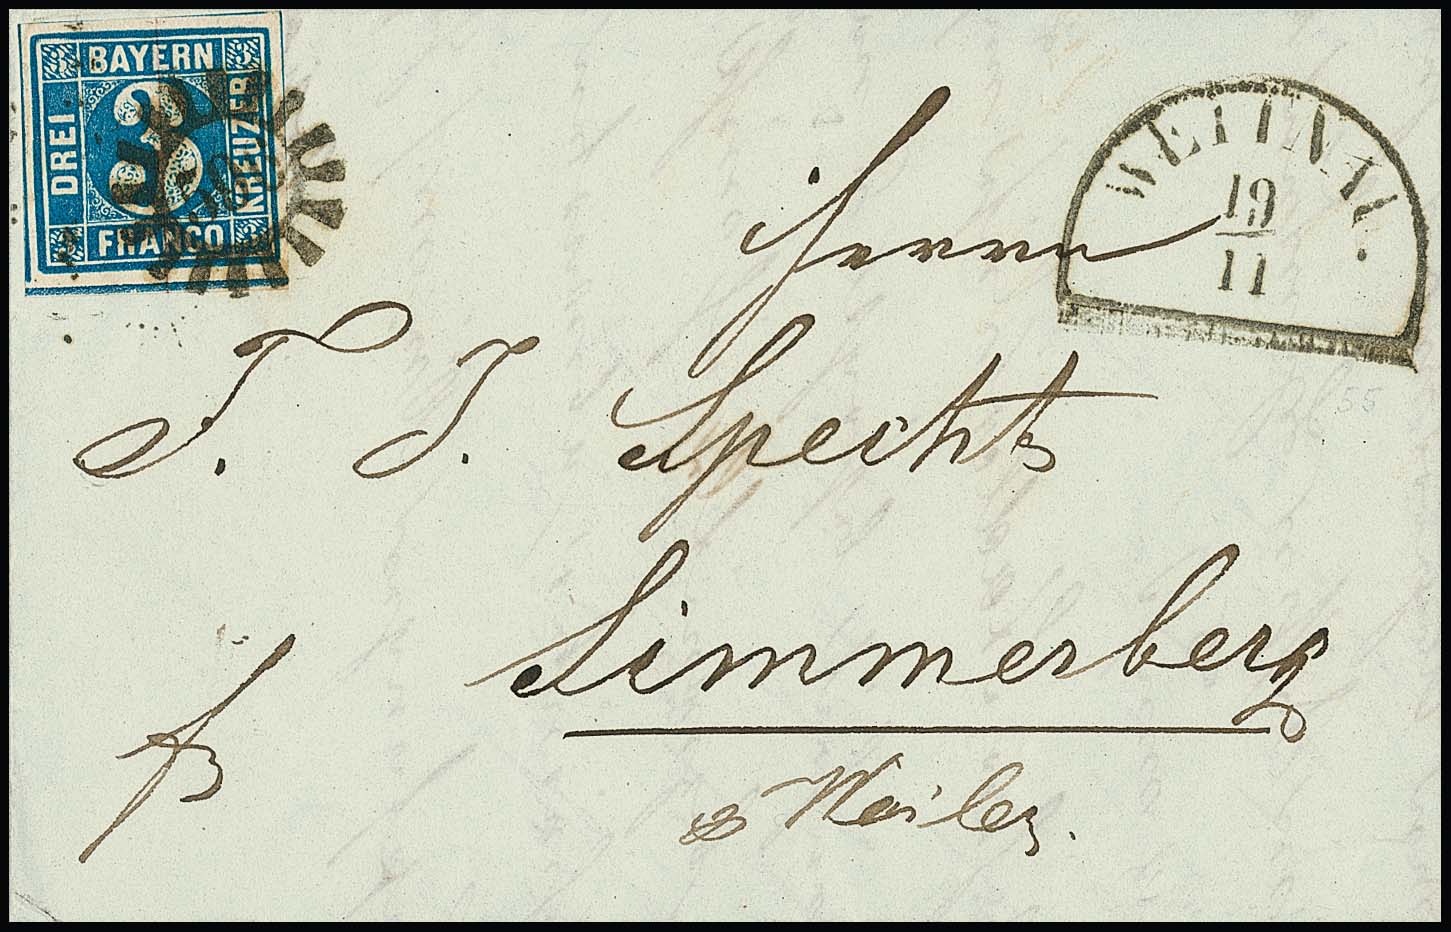 3 BAYERN 3
DREI 3 KREUZER
3 FRANCO 3
WEITNAU.
19
11
Herrn
T. J. Specht
55
Simmerberg
fr
Weiler.